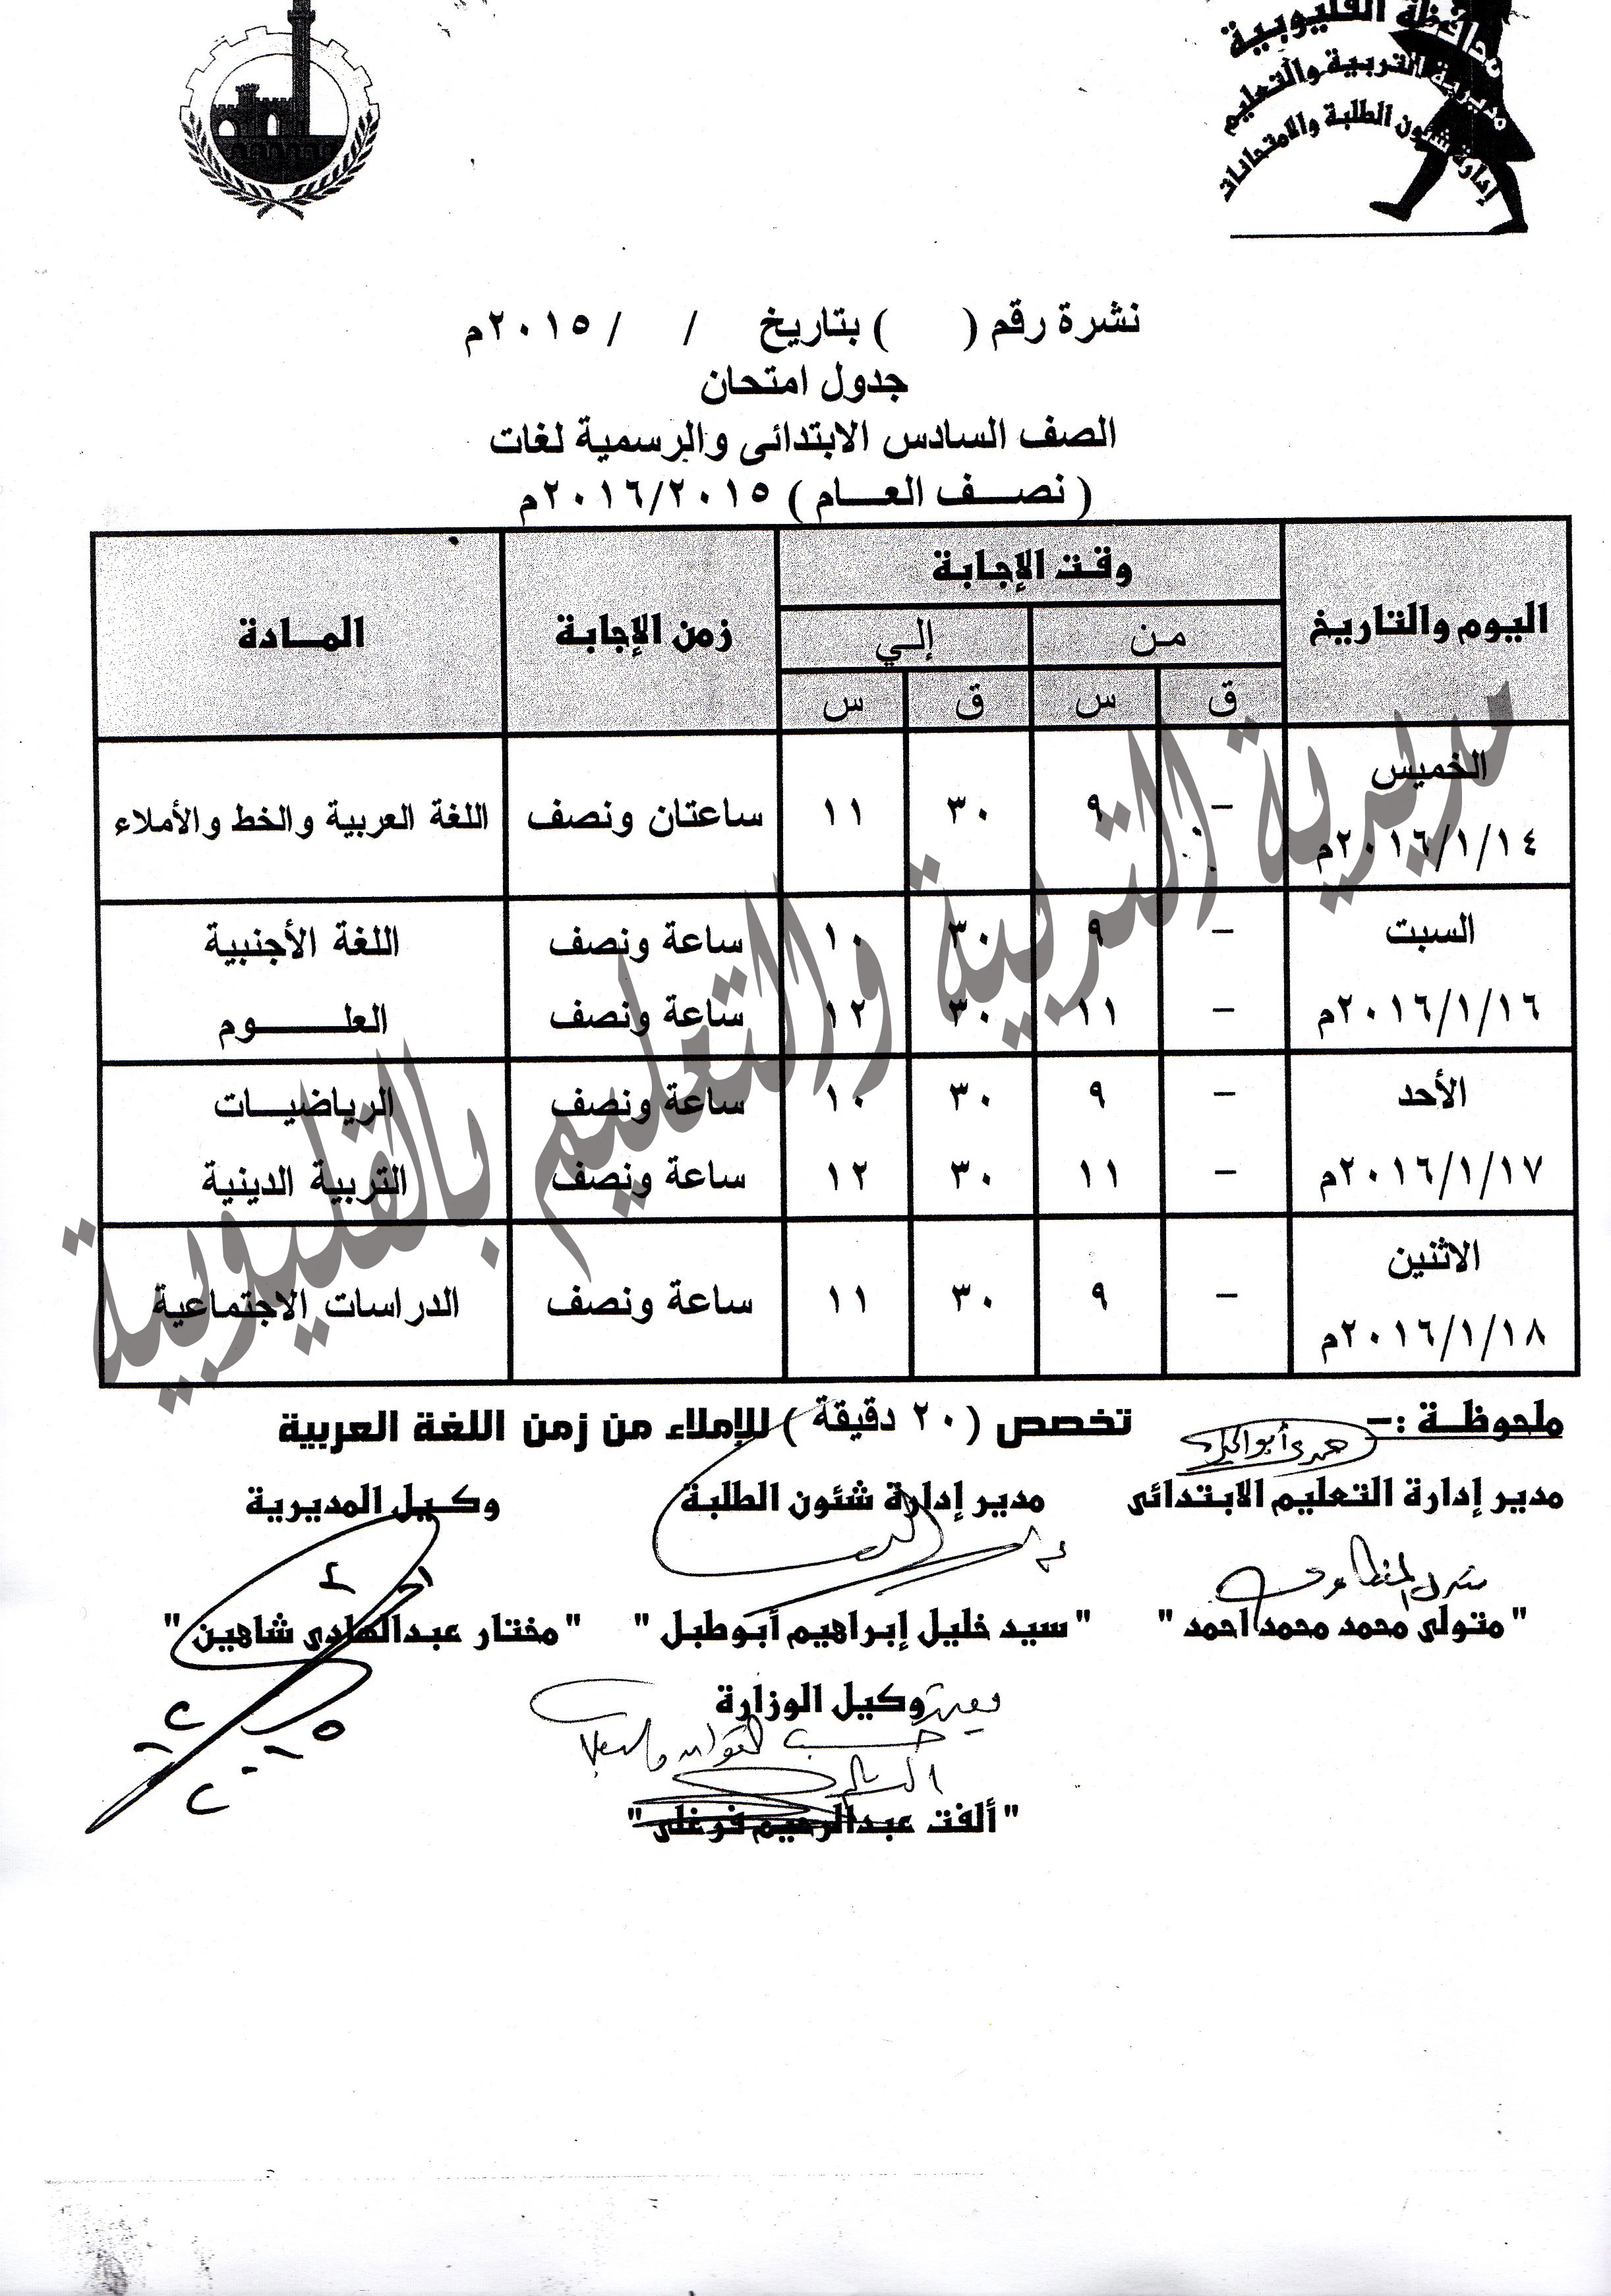 محافظة القليوبية
مديرية التربية والتعليم
إدارة شئون الطلبة والامتحانات
نشرة رقم (      ) بتاريخ    /    / ٢٠١٥م
جدول امتحان
الصف السادس الابتدائى والرسمية لغات
( نصـــف العـــام ) ٢٠١٦/٢٠١٥م
اليوم والتاريخ وقت الإجابة زمن الإجابة المـادة
من إلي
ق س ق س
الخميس
٢٠١٦/١/١٤م – ٩ ٣٠ ١١ ساعتان ونصف اللغة العربية والخط والأملاء
السبت – ٩ ٣٠ ١٠ ساعة ونصف اللغة الأجنبية
٢٠١٦/١/١٦م – ١١ ٣٠ ١٢ ساعة ونصف العلـــــوم
الأحد – ٩ ٣٠ ١٠ ساعة ونصف الرياضيـــات
٢٠١٦/١/١٧م – ١١ ٣٠ ١٢ ساعة ونصف التربية الدينية
الاثنين
٢٠١٦/١/١٨م – ٩ ٣٠ ١١ ساعة ونصف الدراسات الاجتماعية
مديرية التربية والتعليم بالقليوبية
ملحوظـة :– تخصص (٢٠ دقيقة ) للإملاء من زمن اللغة العربية
مدير إدارة التعليم الابتدائى مدير إدارة شئون الطلبة وكيل المديرية
" متولى محمد محمد احمد " " سيد خليل إبراهيم أبوطبل " " مختار عبدالهادى شاهين "
وكيل الوزارة
" ألفت عبدالرحيم فرغلى "